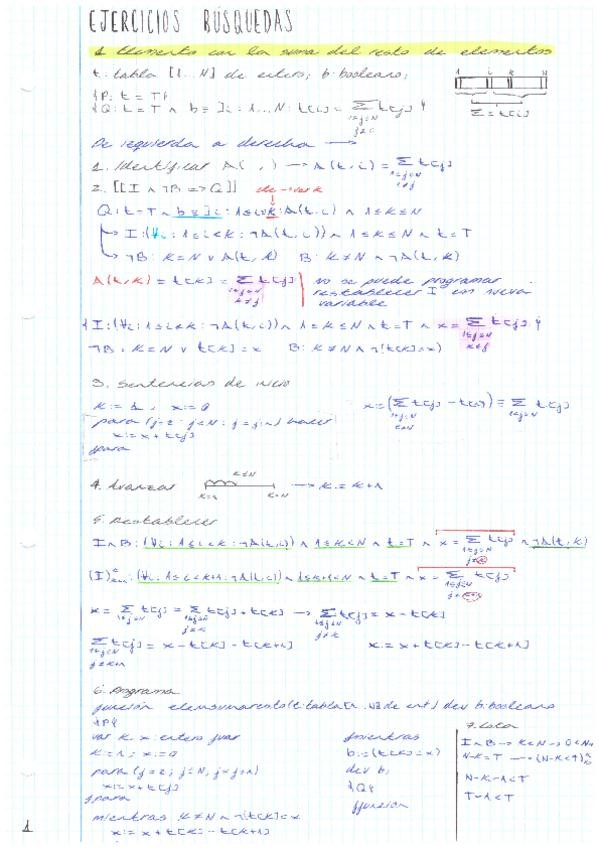 EJERCICIOS BÚSQUEDAS
1. Elemento con la suma del resto de elementos
t: tabla [1...N] de enteros; b: booleano;
{P: t = T}
{Q: t = T ∧ b = ∃i: 1...N: t[i] = Σ t[j] }
1≤j≤N
j≠i
Σ = t[i]
De izquierda a derecha →
1. Identificar A( , ) → A(t,i) = Σ t[j]
1≤j≤N
i≠j
2. [[I ∧ ¬B => Q]]
Q: t=T ∧ b = ∃i: 1≤i≤K: A(t,i) ∧ 1≤K≤N
→ I: (∀i: 1≤i<K: ¬A(t,i)) ∧ 1≤K≤N ∧ t=T
→ ¬B: K=N ∨ A(t,K) B: K≠N ∧ ¬A(t,K)
A(t,K) = t[K] = Σ t[j]
1≤j≤N
K≠j
no se puede programar
restablecer I con nueva
variable
{I: (∀i: 1≤i<K: ¬A(t,i)) ∧ 1≤K≤N ∧ t=T ∧ x = Σ t[j] }
1≤j≤N
K≠j
¬B: K=N ∨ t[K]=x B: K≠N ∧ ¬(t[K]=x)
3. Sentencias de inicio
K:=1; x:=0
para (j=2; j≤N; j=j+1) hacer
x:=x+t[j]
fpara
4. Avanzar
K≤N
K=1 K=N → K:=K+1
5. Restablecer
I∧B: (∀i: 1≤i<K: ¬A(t,i)) ∧ 1≤K<N ∧ t=T ∧ x = Σ t[j] ∧ ¬A(t,K)
1≤j≤N
j≠K
(∀i: 1≤i<K+1: ¬A(t,i)) ∧ 1≤K+1≤N ∧ t=T ∧ x = Σ t[j]
1≤j≤N
j≠K+1
x:=x+t[K]-t[K+1]
6. Programa
función elemsumaresto(t: tabla[1..N] de ent) dev b: booleano
{P}
var K, x: entero fvar
K:=1; x:=0
para (j=2; j≤N, j=j+1)
x:=x+t[j]
fpara
mientras K≠N ∧ ¬(t[K]=x
x:=x+t[K]-t[K+1]
fmientras
b:=(t[K]=x)
dev b;
{Q}
ffunción
7. Cota
N-K=T
N-K-1<T
T-1<T
1